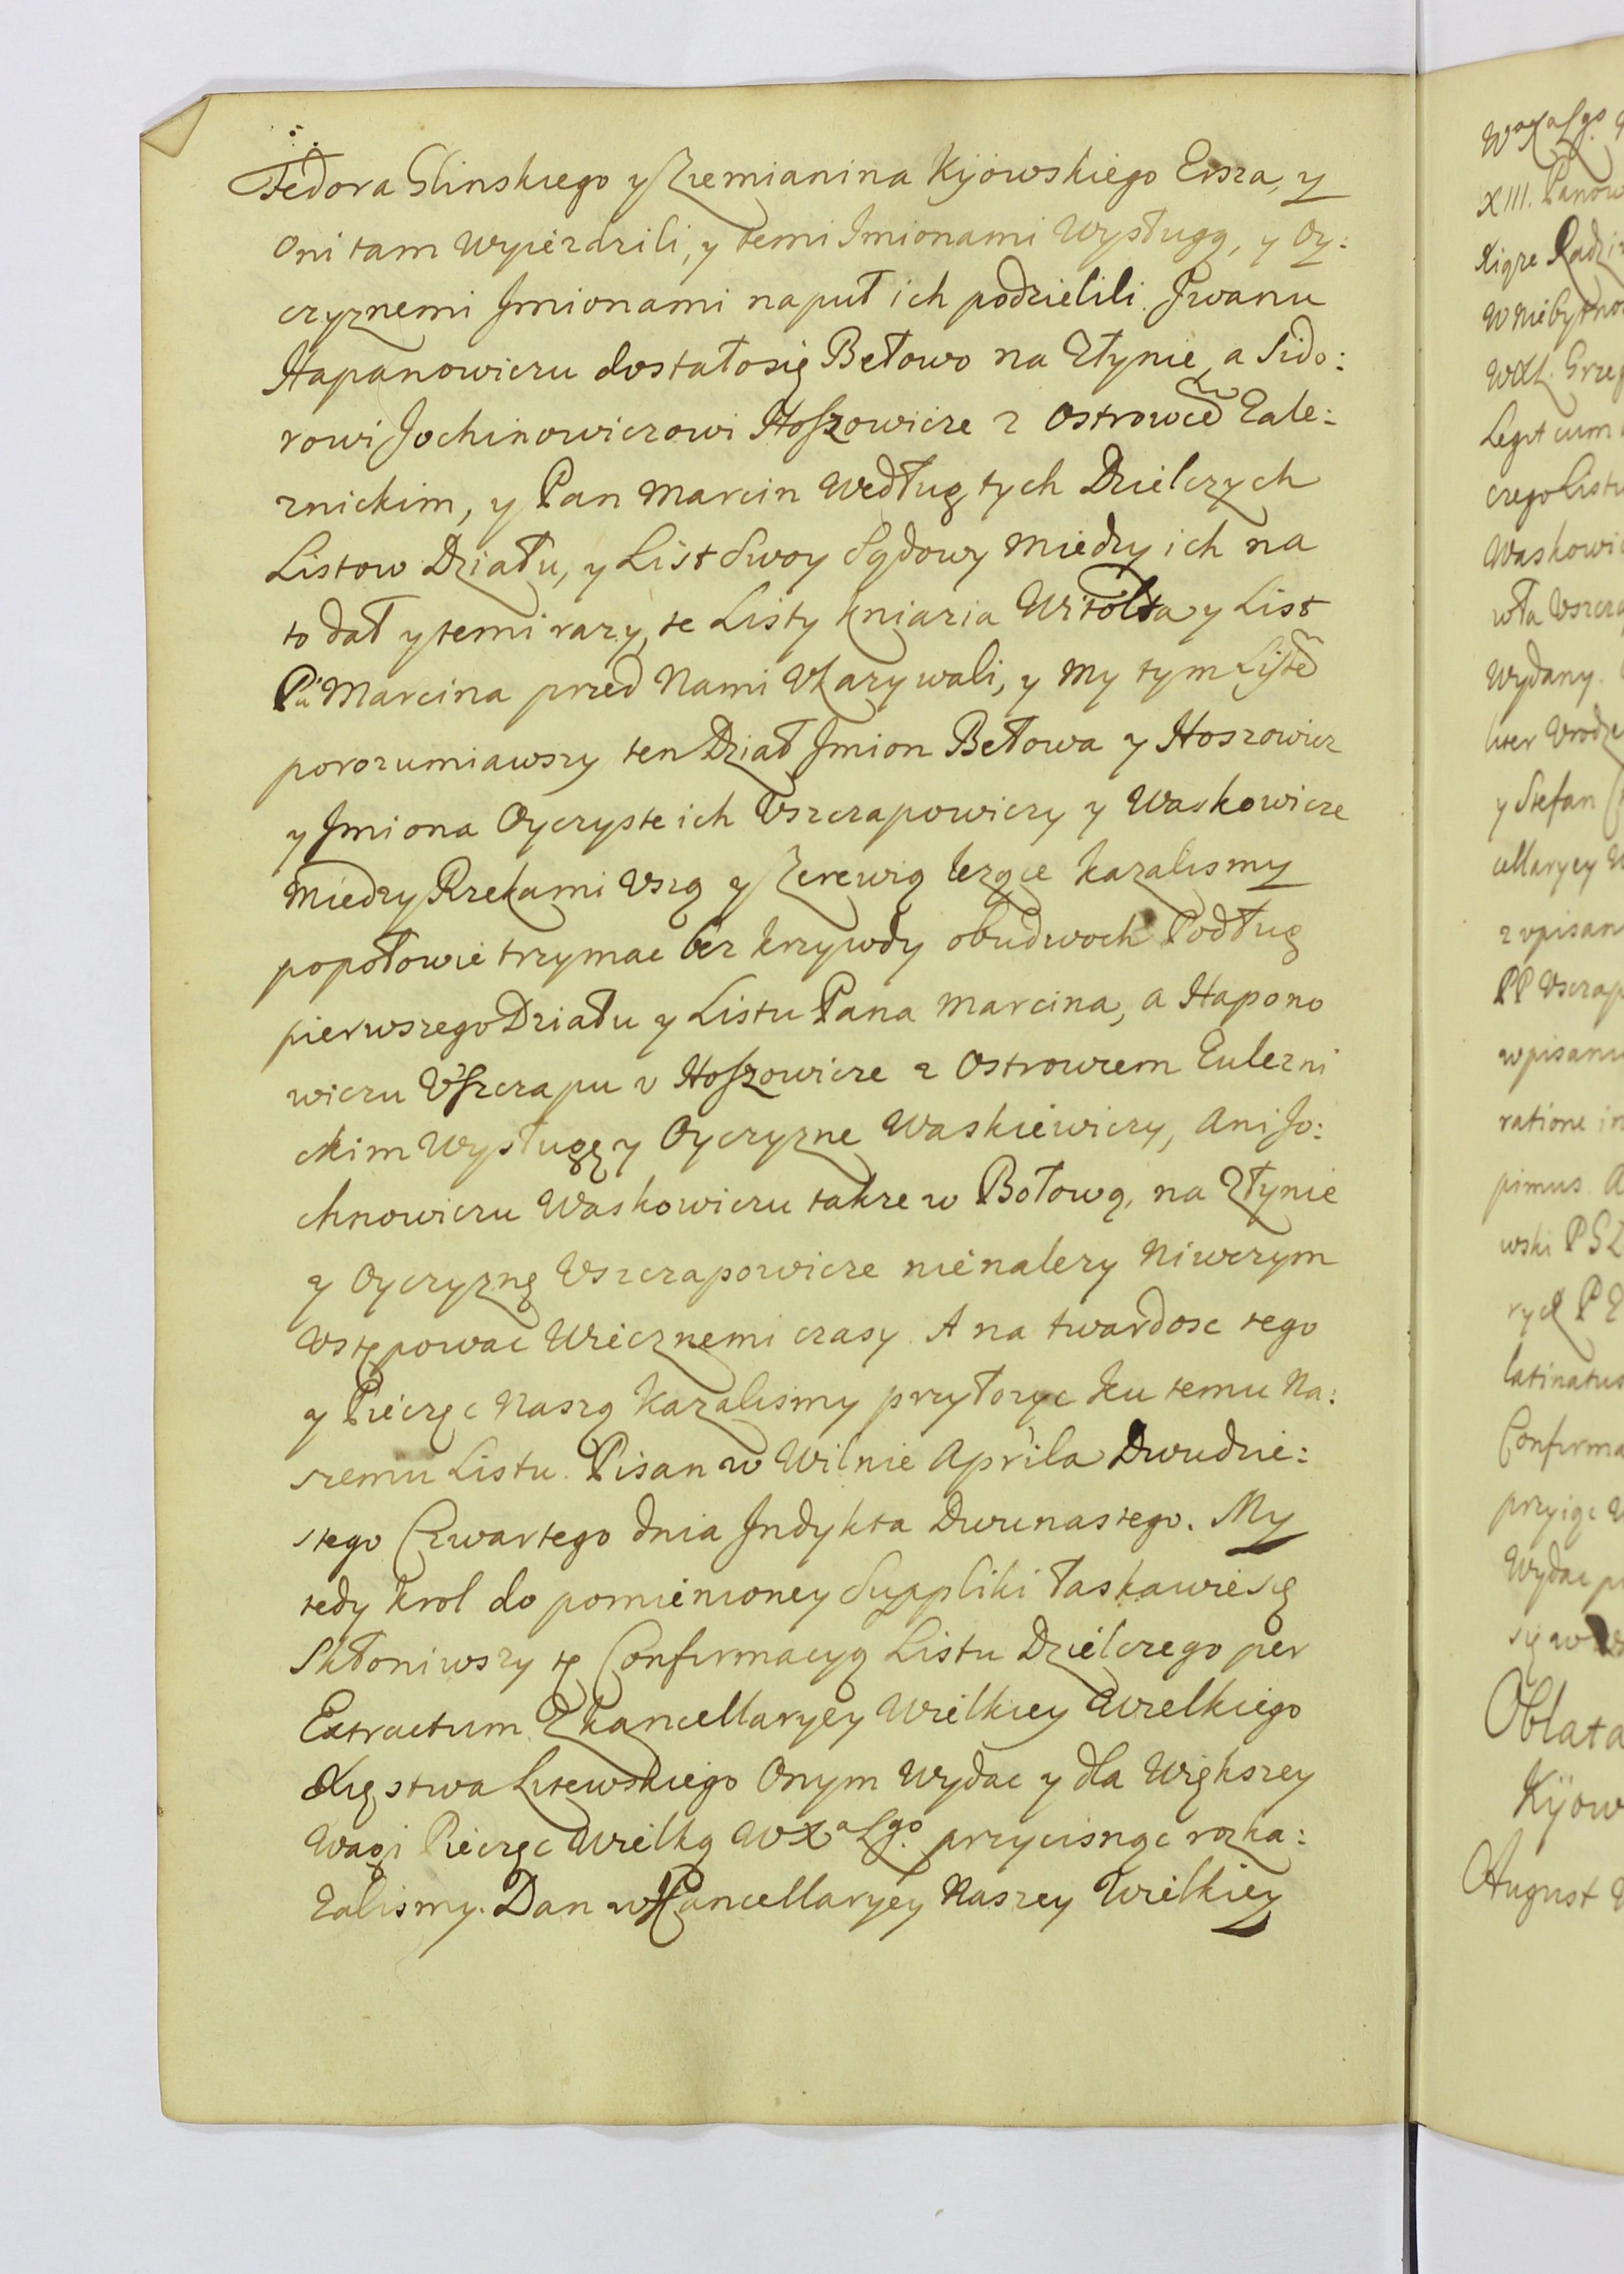 Fedora Glinskiego y Ziemianina Kijowskiego Ersza, y
Oni tam Wyiezdzili, y temi Jmionami Wysługą, y Oy:
czyznemi Jmionami naput ich podzielili. Jwanu
Hapanowiczu dostałosię Bełowo na Złynie, a Sido:
rowi Jochinowiczowi Hoszowicze z Ostrowcē Eale:
znickim, y Pan Marcin Według tych Dzielczych
Listow Działu, y List Swoy Sądowy miedzy ich na
to dał y temi razy, te Listy kniazia Witolta y List
Pa Marcina przed Nami Vkazywali, y My tym Listē
porozumiawszy ten Dział Jmion Bełowa y Hoszowicz
y Jmiona Oyczyste ich Vszczapowiczy y Waskowicze
miedzy Rzekami Vszą y Zerewią lezące kazalismy
popołowie trzymac bez krzywdy obudwoch Podług
pierwszego Działu y Listu Pana Marcina, a Hapono
wiczu Vszczapu v Hoszowicze z Ostrowcem Eulezni
ckim Wysługę y Oyczyzne Waskiewiczy, Ani Jo:
chnowiczu Waskowiczu takze w Bołową, na Złynie
y Oyczyznę Vszczapowicze nienalezy Niwczym
Wstępowac Wiecznemi czasy. A na twardosc tego
y Pieczęc Naszą kazalismy przyłozyc ku temu Na:
szemu Listu. Pisan w Wilnie Aprila Dwudzie:
stego Czwartego dnia Jndykta Dwunastego. My
tedy Krol do pomienioney Suppliki łaskawie się
Skłoniwszy tę Confirmacyą Listu Dzielczego per
Extractum Z kancellaryey Wielkiey Wielkiego
Xięstwa Litewskiego Onym Wydac y dla Większey
Wagi Pieczęc Wielką WXa Lgo. przycisnąc rozka:
zalismy. Dan w Kancellaryey Naszey Wielkiey
WXa Lgo.
XIII. Panow
Xiąze Radzi
W niebytno
WXL. Grzeg
Legit cum
czego Listu
Waskowi
wła Vszcza
Wydany.
y Stefan
cellaryey W
z wpisan
PP Vszczap
wpisanu
ratione in
pimus. A
wski PSZ
latinatus
Confirma
przyiąc
Wydac
się w
Oblata
Kijow
August